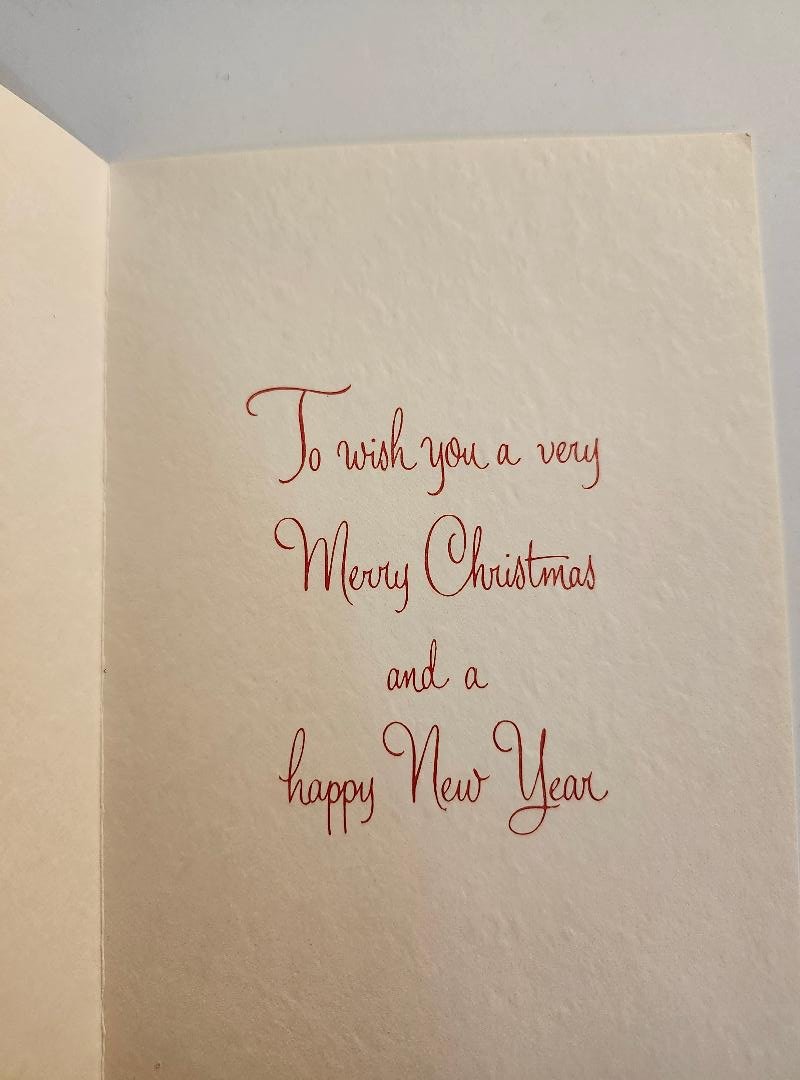 To wish you a very
Merry Christmas
and a
happy New Year